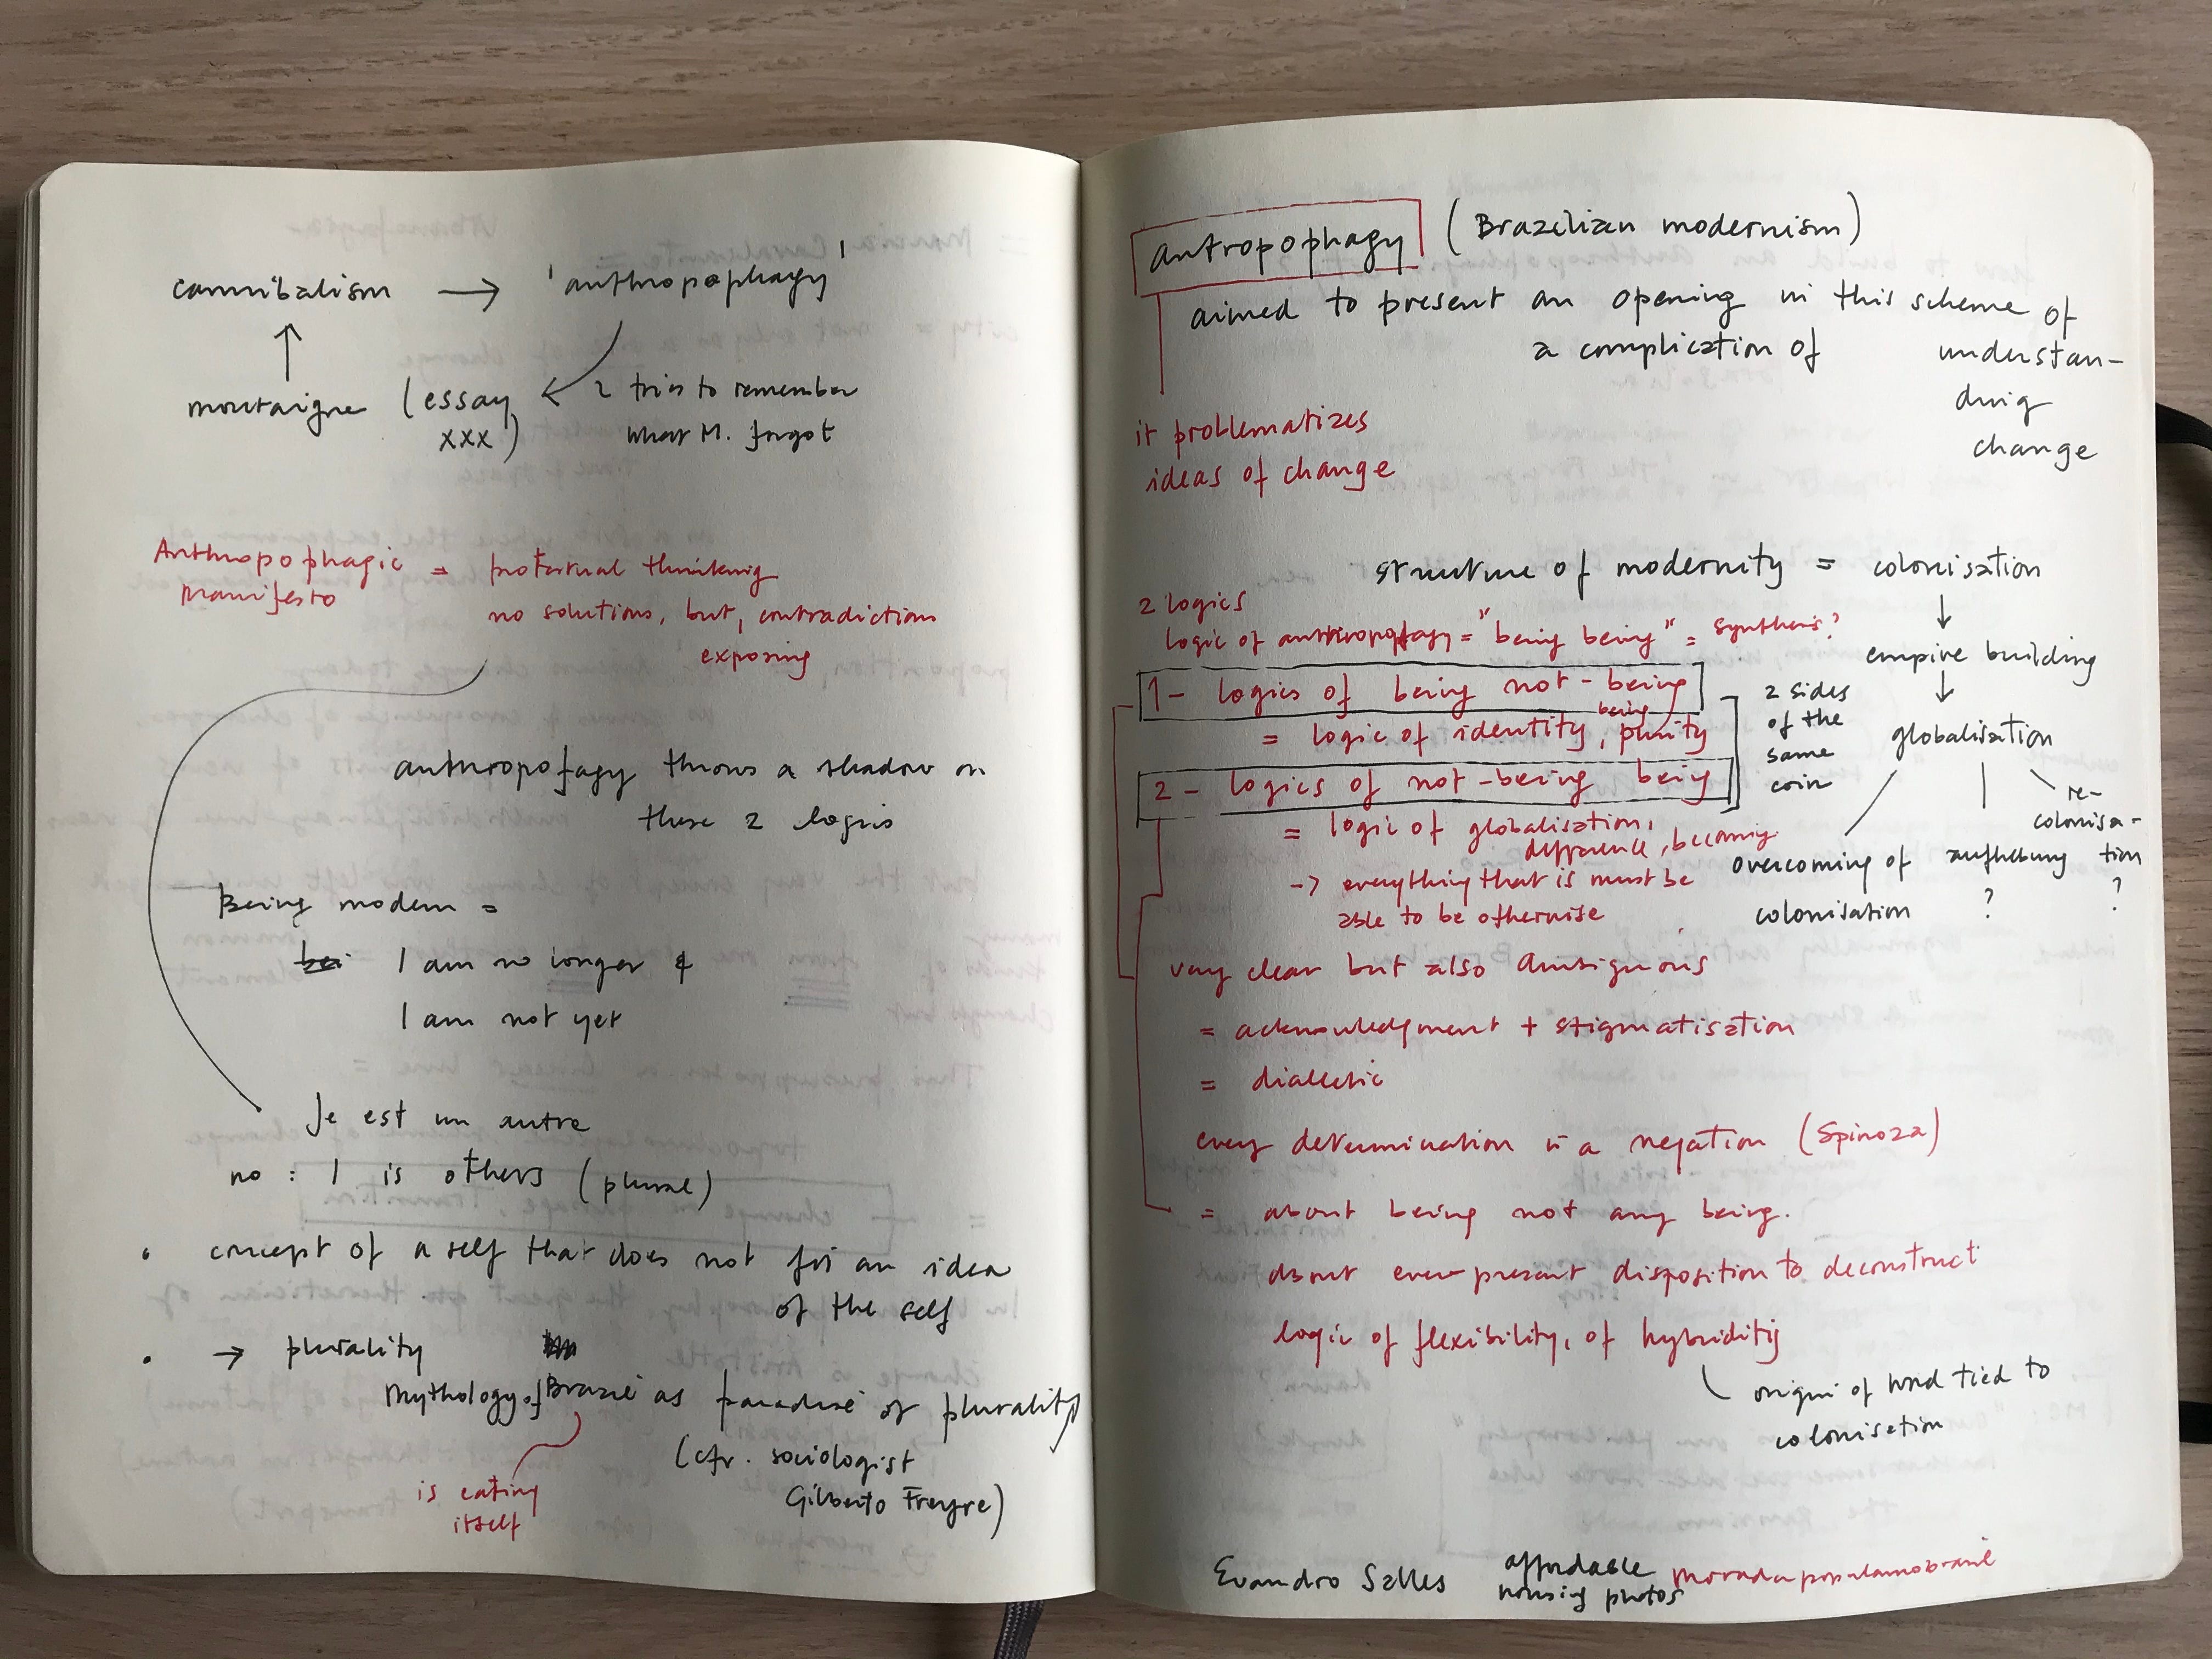 cannibalism → 'anthropophagy'
↑
montaigne (essay ← tries to remember
xxx) what M. forgot
Anthropophagic = potential thinking
Manifesto
no solutions, but, contradiction
exposing
anthropofagy throws a shadow on
these 2 logics
Being modern =
I am no longer &
I am not yet
Je est un autre
no : I is others (plural)
• concept of a self that does not fix an idea
of the self
• → plurality
Mythology of Brazil as paradise of plurality
(cfr. sociologist
Gilberto Freyre)
is eating
itself
antropophagy (Brazilian modernism)
aimed to present an opening in this scheme of
a complication of understan-
ding
change
it problematizes
ideas of change
structure of modernity = colonisation
↓
empire building
↓
globalisation
overcoming of
colonisation
aufhebung
?
re-
colonisa-
tion
?
2 logics
logic of anthropofagy = "being being" = synthesis?
1- logics of being not-being
being
= logic of identity, purity
2 - logics of not-being being
2 sides
of the
same
coin
= logic of globalisation,
difference, becoming
-> everything that is must be
able to be otherwise
very clear but also ambiguous
= acknowledgment + stigmatisation
= dialletic
every determination is a negation (Spinoza)
= about being not any being.
about ever-present disposition to deconstruct
logic of flexibility, of hybriditij
origin of word tied to
colonisation
Evandro Salles
affordable
housing photos